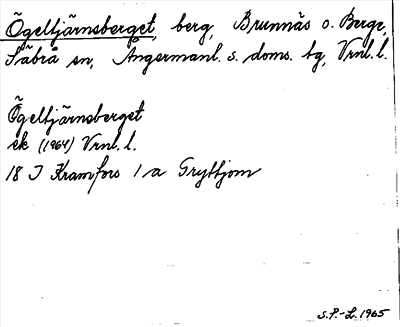 Ögeltjärnsberget, berg, Brunnäs o. Berge,
Säbrå sn, Ångermanl. s. doms. tg, Vrnl. l.
Ögeltjärnsberget
ek (1964) Vrnl. l.
18 I Kramfors 1 a Gryttjom
S.P.-L. 1965